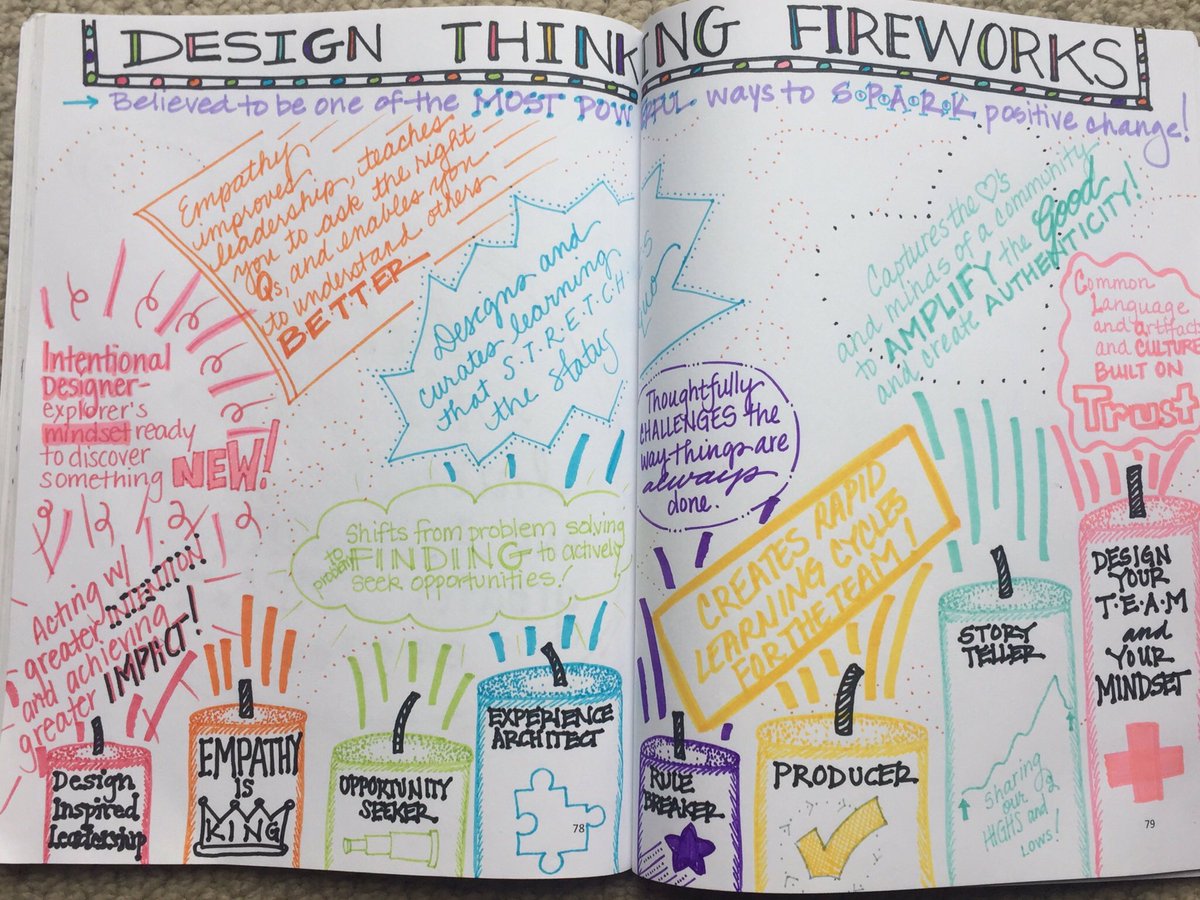 DESIGN THINKING FIREWORKS
→ Believed to be one of the MOST POW FUL ways to S.P.A.R.K positive change!
Empathy
improves
leadership, teaches
you to ask the right
Qs, and enables you
to understand others
BETTER
Designs and
curates learning
that S.T.R.E.T.C.H
the status
Captures the ♡'s
and minds of a community
to AMPLIFY the Good
and create AUTHENTICITY!
Common
Language
and artifact
and CULTURE
BUILT ON
Trust
Intentional
Designer-
explorer's
mindset ready
to discover
something NEW!
Thoughtfully
CHALLENGES the
way things are
always
done.
Shifts from problem solving
to problem FINDING to actively
seek opportunities!
CREATES RAPID
LEARNING CYCLES
FOR THE TEAM!
Acting w/
greater INTENTION
and achieving
greater IMPACT!
Design
Inspired
Leadership
EMPATHY
is
KING
OPPORTUNITY
SEEKER
EXPERIENCE
ARCHITECT
RULE
BREAKER
PRODUCER
STORY
TELLER
sharing
our
HIGHS and
LOWS!
DESIGN
YOUR
T.E.A.M
and
YOUR
MINDSET
78
79